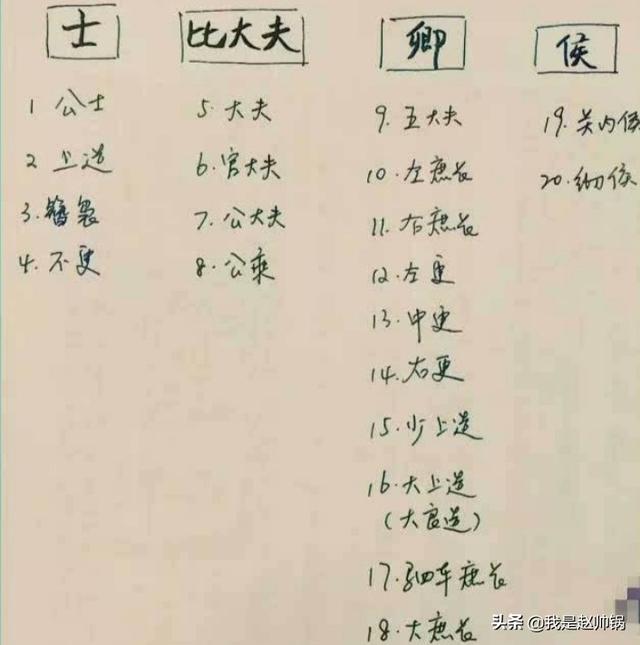 士
1 公士
2 上造
3. 簪袅
4. 不更
比大夫
5. 大夫
6. 官大夫
7. 公大夫
8. 公乘
卿
9. 五大夫
10. 左庶长
11. 右庶长
12. 左更
13. 中更
14. 右更
15. 少上造
16. 大上造
(大良造)
17. 驷车庶长
18. 大庶长
侯
19. 关内侯
20. 彻侯
头条 @我是赵帅锅